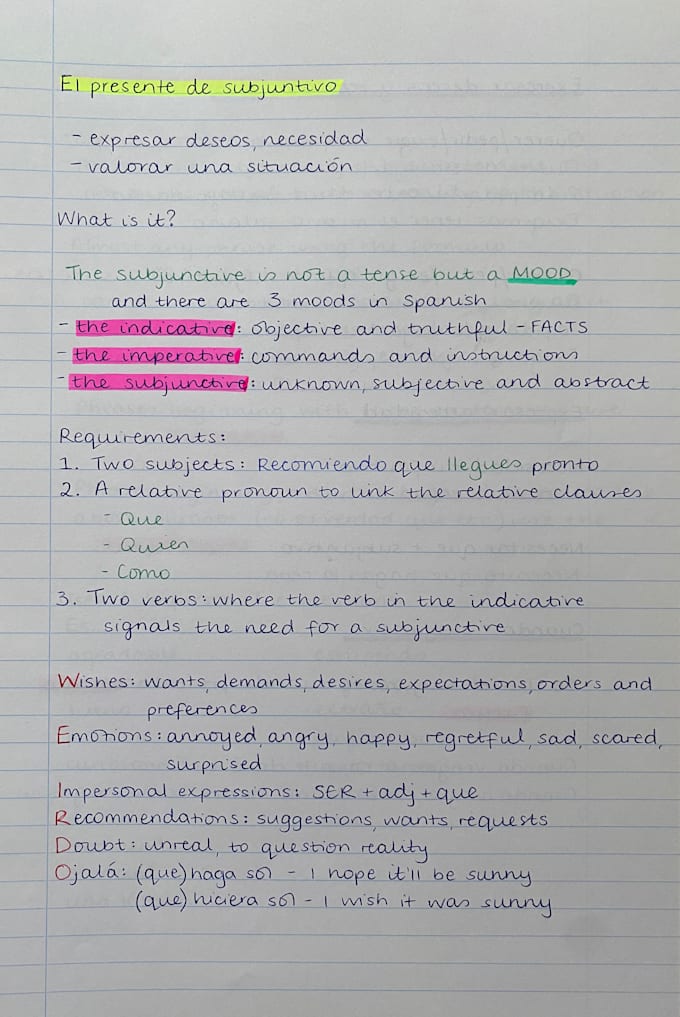 El presente de subjuntivo
- expresar deseos, necesidad
- valorar una situación
What is it?
The subjunctive is not a tense but a MOOD
and there are 3 moods in Spanish
- the indicative: objective and truthful - FACTS
- the imperative: commands and instructions
- the subjunctive: unknown, subjective and abstract
Requirements:
1. Two subjects: Recomiendo que llegues pronto
2. A relative pronoun to link the relative clauses
- Que
- Quien
- Como
3. Two verbs: where the verb in the indicative
signals the need for a subjunctive
Wishes: wants, demands, desires, expectations, orders and
preferences
Emotions: annoyed, angry, happy, regretful, sad, scared,
surprised
Impersonal expressions: SER + adj + que
Recommendations: suggestions, wants, requests
Doubt: unreal, to question reality
Ojalá: (que) haga sol - I hope it'll be sunny
(que) hiciera sol - I wish it was sunny